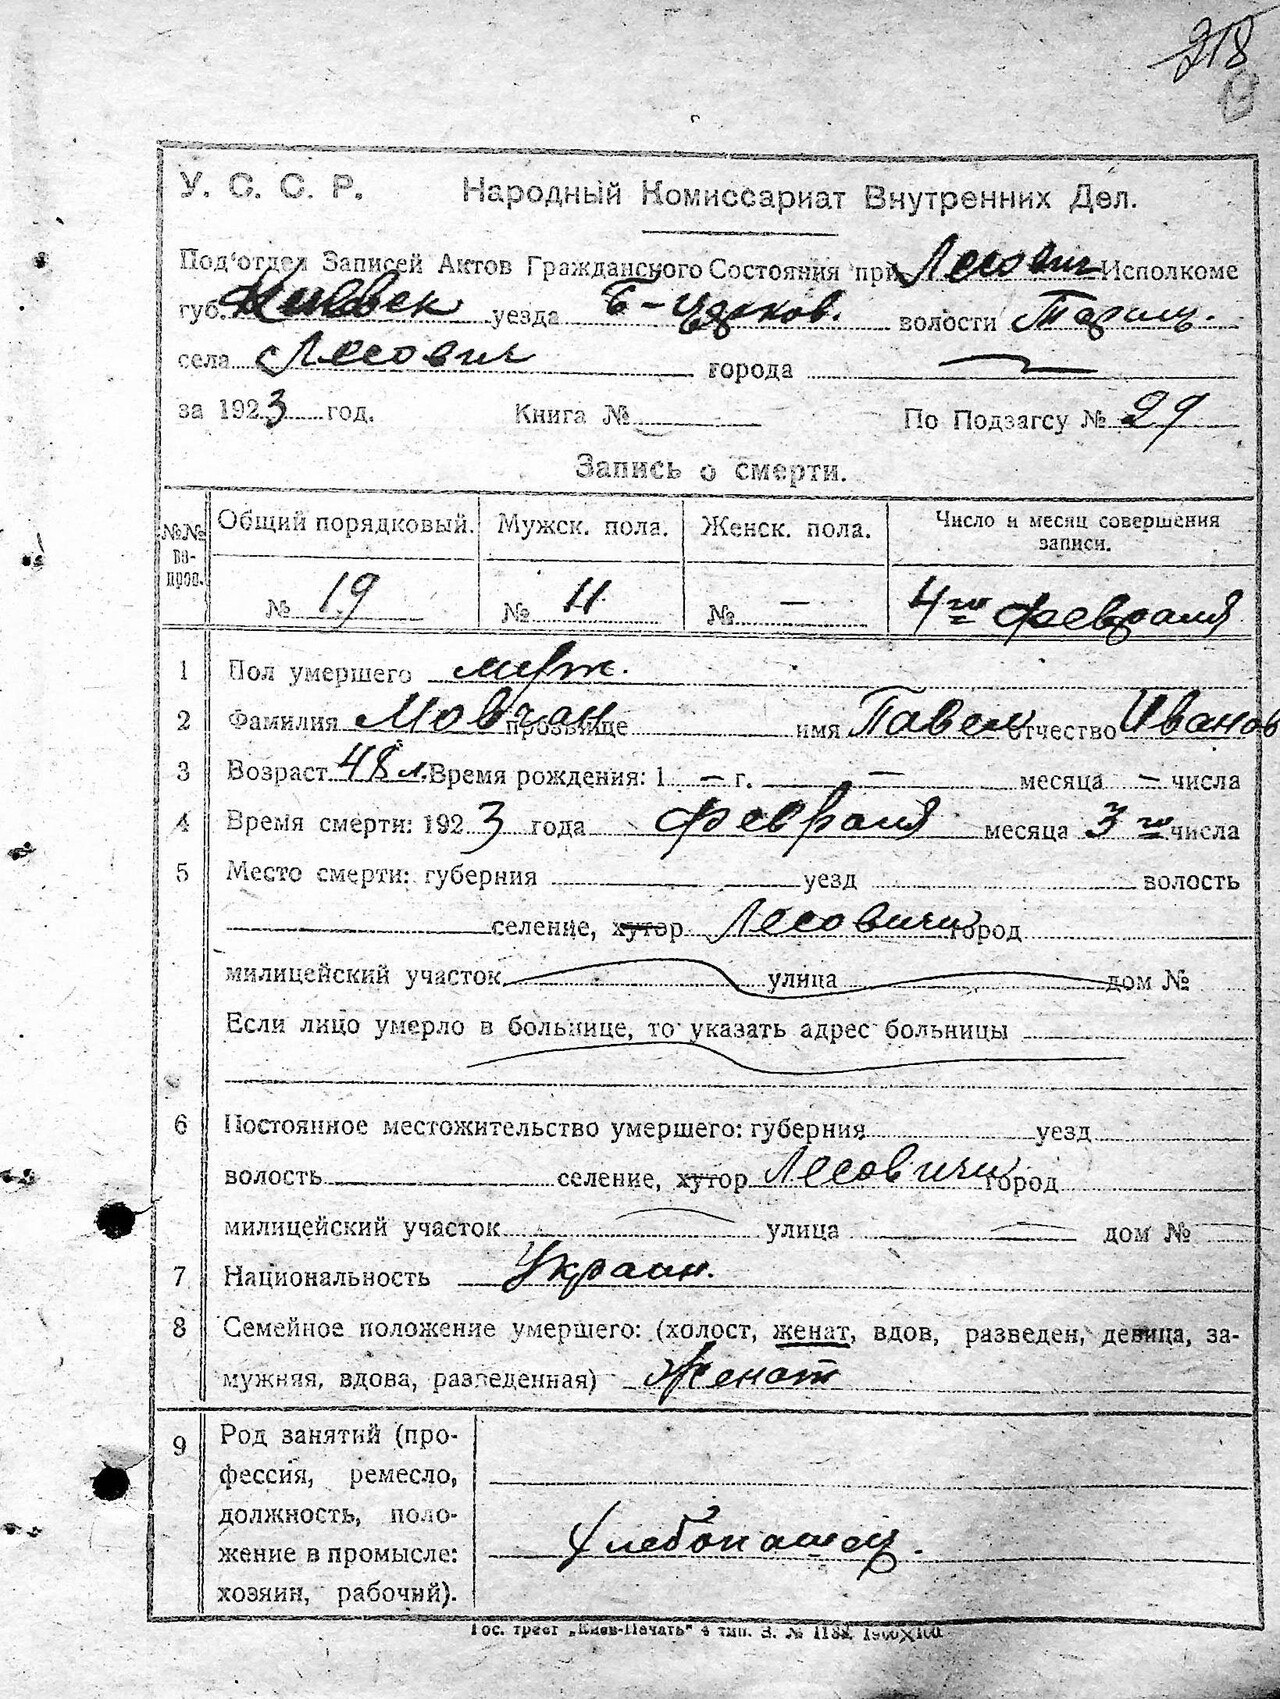 218
У. С. С. Р. Народный Комиссариат Внутренних Дел.
Под'отдел Записей Актов Гражданского Состояния при Лесович Исполкоме
губ. Киевск уезда Б-Церков. волости Таращ.
села Лесович города —
за 1923 год. Книга № По Подзагсу № 29
Запись о смерти.
№№ вопров. Общий порядковый. Мужск. пола. Женск. пола. Число и месяц совершения записи.
№ 19 № 11 № — 4го февраля
1 Пол умершего муж.
2 Фамилия Мовчан прозвище имя Павел отчество Иванов
3 Возраст 48 л. Время рождения: 1 — г. — месяца — числа
4 Время смерти: 1923 года февраля месяца 3го числа
5 Место смерти: губерния уезд волость
селение, хутор Лесовичи город
милицейский участок улица дом №
Если лицо умерло в больнице, то указать адрес больницы
6 Постоянное местожительство умершего: губерния уезд
волость селение, хутор Лесовичи город
милицейский участок улица дом №
7 Национальность Украин.
8 Семейное положение умершего: (холост, женат, вдов, разведен, девица, за-
мужняя, вдова, разведенная) Женат
9 Род занятий (про-
фессия, ремесло,
должность, поло-
жение в промысле: Хлебопашец.
хозяин, рабочий).
Гос. трест „Киев-Печать" 4 тип. З. № 1182